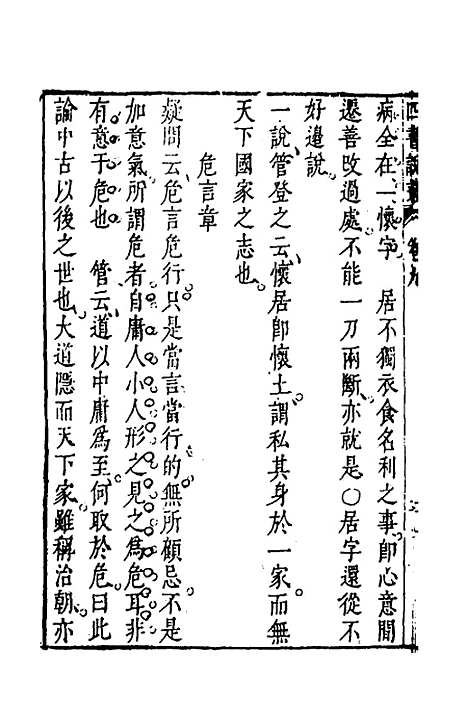 四書說叢 卷九
病全在一懷字 居不獨衣食名利之事卽心意間
遷善改過處不能一刀兩斷亦就是○居字還從不
好邊說
一說管登之云懷居卽懷土謂私其身於一家而無
天下國家之志也
危言章
疑問云危言危行只是當言當行的無所顧忌不是
加意氣所謂危者自庸人小人形之見之爲危耳非
有意于危也 管云道以中庸爲至何取於危曰此
論中古以後之世也大道隱而天下家雖稱治朝亦